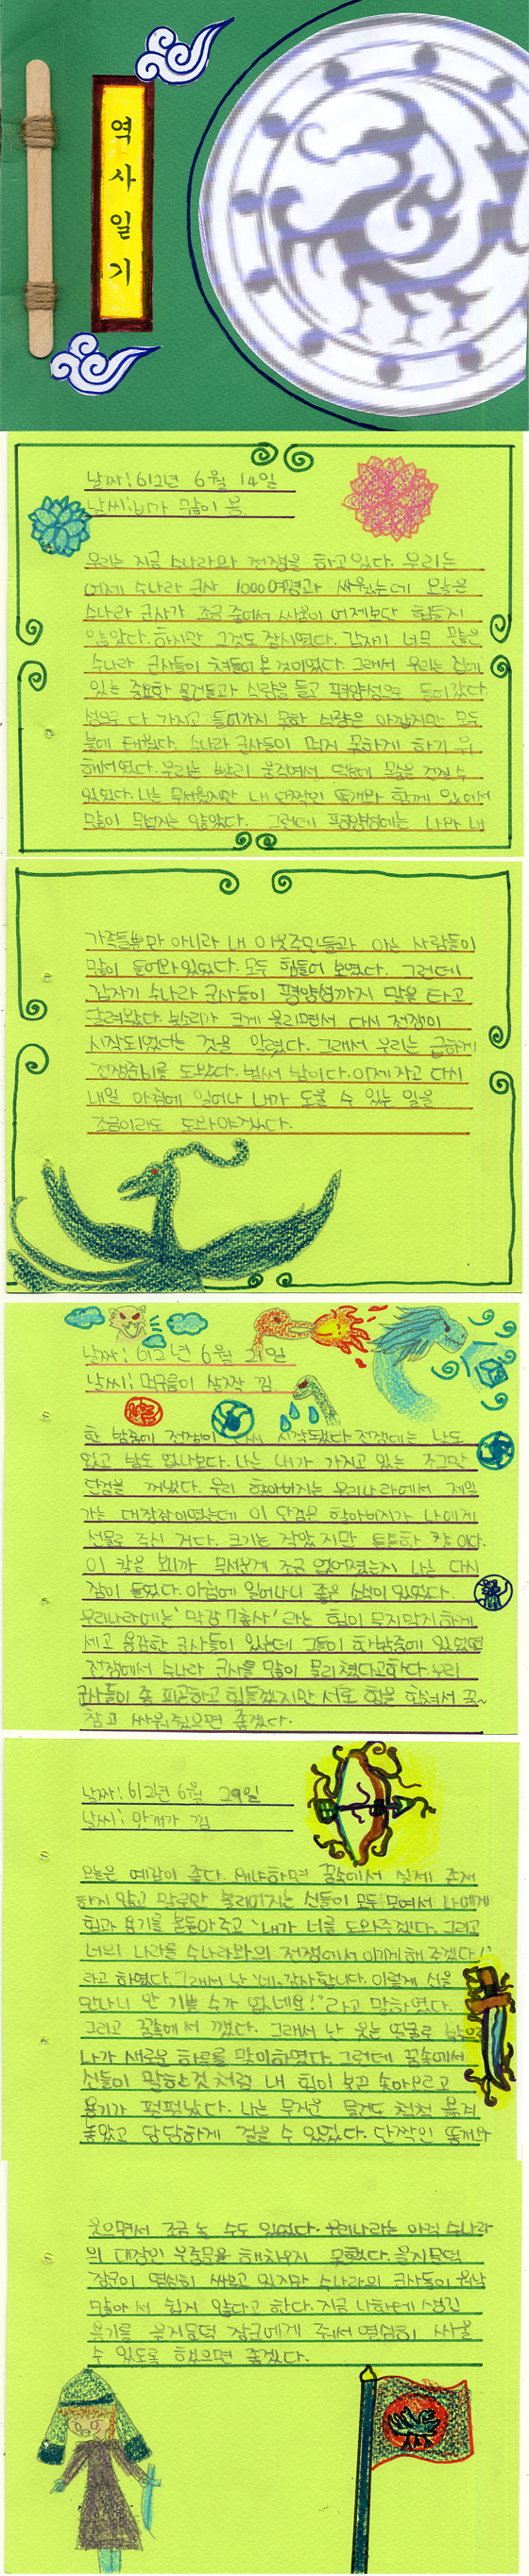 역
사
일
기
날짜: 612년 6월 14일
날씨: 비가 많이 옴.
우리는 지금 수나라와 전쟁을 하고 있다. 우리는
어제 수나라 군사 1000여명과 싸웠는데 오늘은
수나라 군사가 조금 줄어서 싸움이 어제보다 힘들지
않았다. 하지만 그것도 잠시였다. 갑자기 너무 많은
수나라 군사들이 쳐들어 온 것이었다. 그래서 우리는 집에
있는 중요한 물건들과 식량을 들고 평양성으로 들어갔다.
성으로 다 가지고 들어가지 못한 식량은 아깝지만 모두
불에 태웠다. 수나라 군사들이 먹지 못하게 하기 위
해서였다. 우리는 빨리 움직여서 덕분에 목숨을 건질 수
있었다. 나는 무서웠지만 내 단짝인 똘개와 함께 있어서
많이 무섭지는 않았다. 그런데 평양성에는 나와 내
가족들뿐만 아니라 내 이웃주민들과 아는 사람들이
많이 들어와 있었다. 모두 힘들어 보였다. 그런데
갑자기 수나라 군사들이 평양성까지 말을 타고
달려왔다. 북소리가 크게 울리면서 다시 전쟁이
시작되었다는 것을 알렸다. 그래서 우리는 급하게
전쟁준비를 도왔다. 벌써 밤이다. 이제 자고 다시
내일 아침에 일어나 내가 도울 수 있는 일을
조금이라도 도와야겠다.
날짜: 612년 6월 21일
날씨: 먹구름이 살짝 낌.
한 밤중에 전쟁이 다시 시작됐다. 전쟁에는 낮도
없고 밤도 없나보다. 나는 내가 가지고 있는 조그만
단검을 꺼냈다. 우리 할아버지는 우리나라에서 제일
가는 대장장이였는데 이 단검은 할아버지가 나에게
선물로 주신 거다. 크기는 작았지만 튼튼한 칼이다.
이 칼을 보니까 무서운게 조금 없어졌는지 나는 다시
잠이 들었다. 아침에 일어나니 좋은 소식이 있었다.
우리나라에는 '막강 7용사' 라는 힘이 무지막지하게
세고 용감한 군사들이 있는데 그들이 한밤중에 있었던
전쟁에서 수나라 군사를 많이 물리쳤다고 한다. 우리
군사들이 좀 피곤하고 힘들겠지만 서로 힘을 합쳐서 꼭~
참고 싸워줬으면 좋겠다.
날짜: 612년 6월 29일
날씨: 안개가 낌
오늘은 예감이 좋다. 왜냐하면 꿈속에서 실제 존재
하지 않고 말로만 불리어지는 신들이 모두 모여서 나에게
힘과 용기를 북돋아 주고 "내가 너를 도와주겠다. 그리고
너의 나라를 수나라와의 전쟁에서 이기게 해 주겠다.!"
라고 하였다. 그래서 난 "네. 감사합니다. 이렇게 신을
만나니 안 기쁠 수가 없네요!" 라고 말하였다.
그리고 꿈속에서 깼다. 그래서 난 웃는 얼굴로
나가 새로운 하루를 맞이하였다. 그런데 꿈속에서
신들이 말한것 처럼 내 힘이 불끈 솟아오르고
용기가 펄펄났다. 나는 무거운 물건도 척척 옮겨
놓았고 당당하게 걸을 수 있었다. 단짝인 똘개와
웃으면서 조금 논 수도 있었다. 우리나라는 아직 수나라
의 대장인 우중문을 해치우지 못했다. 을지문덕
장군이 열심히 싸우고 있지만 수나라의 군사들이 워낙
많아서 쉽지 않다고 한다. 지금 나한테 생긴
용기를 을지문덕 장군에게 줘서 열심히 싸울
수 있도록 했으면 좋겠다.